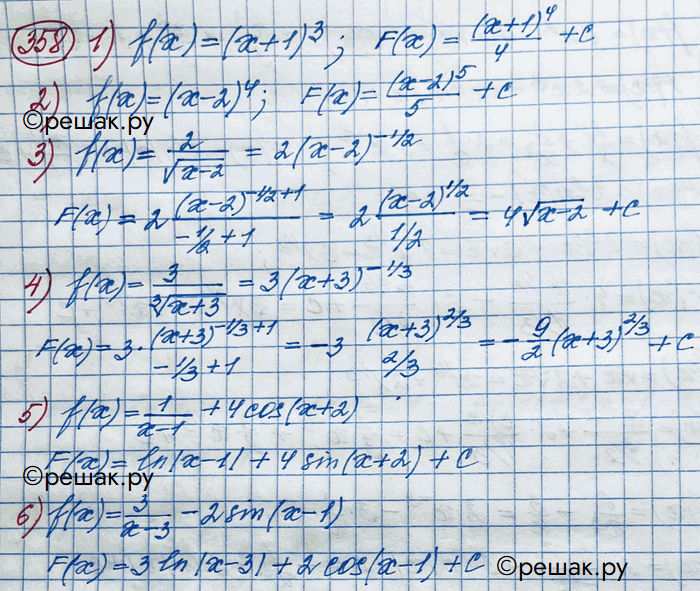 358 1) f(x) = (x+1)³; F(x) = (x+1)⁴/4 + C
2) f(x) = (x-2)⁴; F(x) = (x-2)⁵/5 + C
©решак.ру
3) f(x) = 2/√(x-2) = 2(x-2)^(-1/2)
F(x) = 2 (x-2)^(-1/2+1)/(-1/2+1) = 2 (x-2)^(1/2)/(1/2) = 4√(x-2) + C
4) f(x) = 3/∛(x+3) = 3(x+3)^(-1/3)
F(x) = 3·(x+3)^(-1/3+1)/(-1/3+1) = -3 (x+3)^(2/3)/(2/3) = -9/2(x+3)^(2/3) + C
5) f(x) = 1/(x-1) + 4cos(x+2)
F(x) = ln|x-1| + 4 sin(x+2) + C
©решак.ру
6) f(x) = 3/(x-3) - 2sin(x-1)
F(x) = 3 ln|x-3| + 2 cos(x-1) + C
©решак.ру